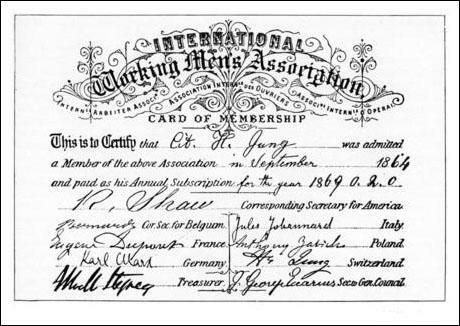 INTERNATIONAL
Working Men's Association
INTERNT ARBEITER ASSOCT ASSOCIATION INTERNLE DES OUVRIERS ASSOCIE INTERNLE D OPERAI
CARD OF MEMBERSHIP
This is to Certify that Cit. H. Jung was admitted
a Member of the above Association in September 1864
and paid as his Annual Subscription for the year 1869 0.2.0.
R. Shaw Corresponding Secretary for America.
Bernard Cor. Sec. for Belgium. Jules Johannard Italy.
Eugène Dupont France. Anthony Zabicki Poland.
Karl Marx Germany. H. Jung Switzerland.
Treasurer. J. George Eccarius Sec. to Genl. Council.